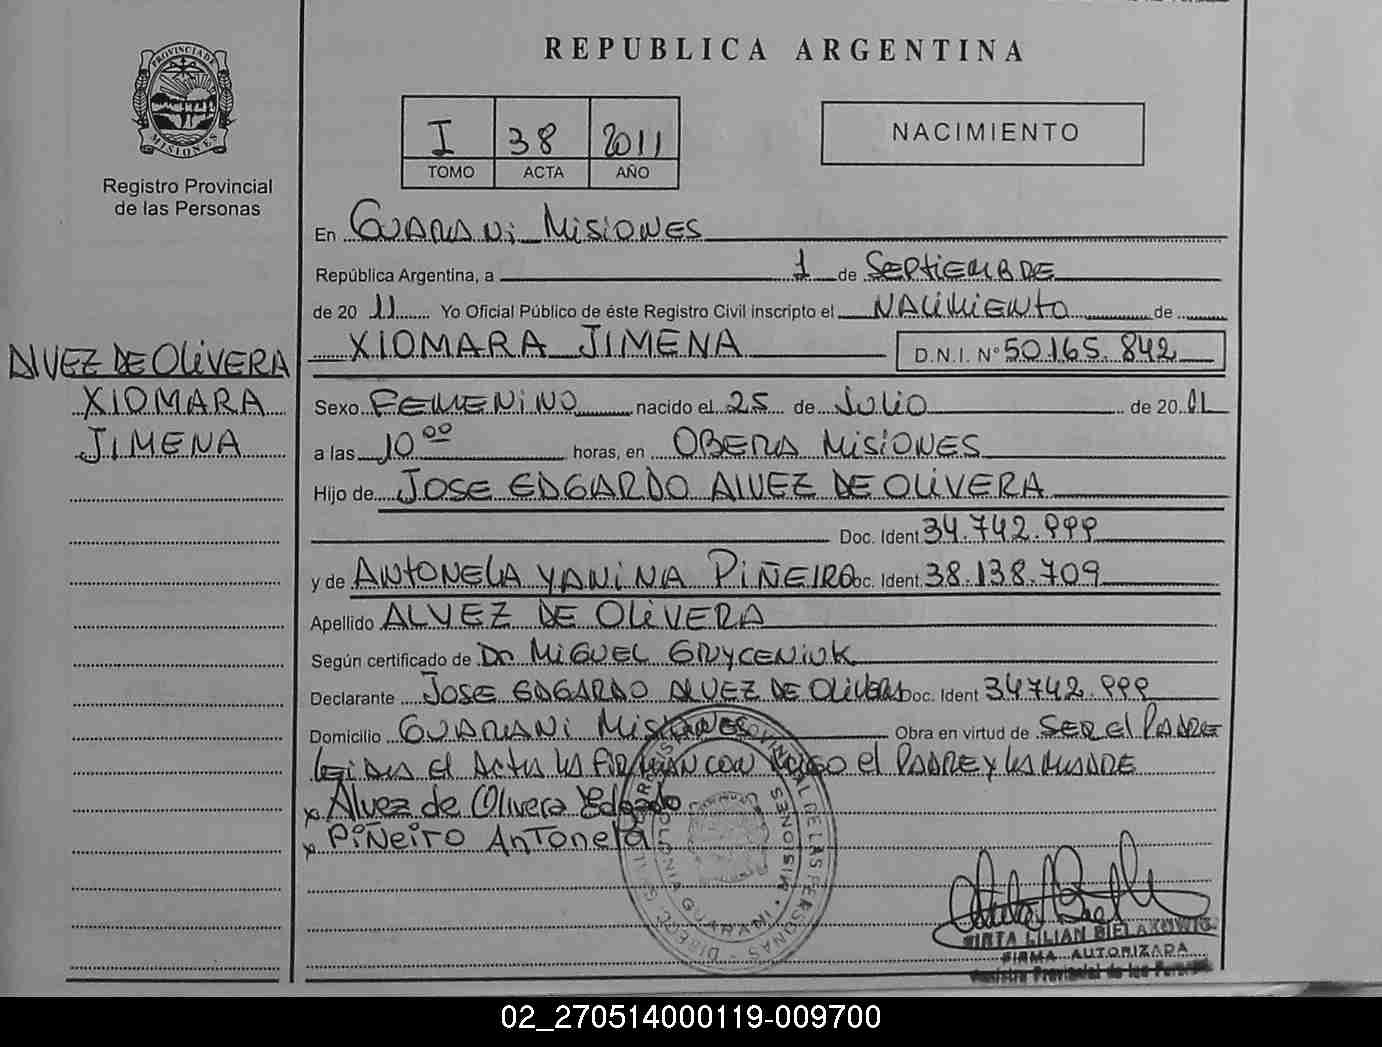 PROVINCIA DE
MISIONES
Registro Provincial
de las Personas
ALVEZ DE OLIVERA
XIOMARA
JIMENA
REPUBLICA ARGENTINA
I 38 2011
TOMO ACTA AÑO
NACIMIENTO
En GUARANI MISIONES
República Argentina, a 1 de SEPTIEMBRE
de 20 11 Yo Oficial Público de éste Registro Civil inscripto el NACIMIENTO de
XIOMARA JIMENA D.N.I. N° 50.165.842
Sexo FEMENINO nacido el 25 de JULIO de 20
a las 10 00 horas, en OBERA MISIONES
Hijo de JOSE EDGARDO ALVEZ DE OLIVERA
Doc. Ident 34.742.999
y de ANTONELA YANINA PIÑEIRO Doc. Ident. 38.138.709
Apellido ALVEZ DE OLIVERA
Según certificado de Dr MIGUEL
Declarante JOSE EDGARDO ALVEZ DE OLIVERA Doc. Ident 34742.999
Domicilio GUARANI MISIONES Obra en virtud de SER El PADRE
leida el ACTA la FIRMAN CON MIGO el PADRE y la MADRE
x Alvez de Olivera Edgardo
x PiÑeiro AnTonela
REGISTRO PROVINCIAL DE LAS PERSONAS
COLONIA GUARANI • MISIONES
MIRTA LILIAN BIELAKOWICZ
FIRMA AUTORIZADA
Registro Provincial de las Personas
02_270514000119-009700